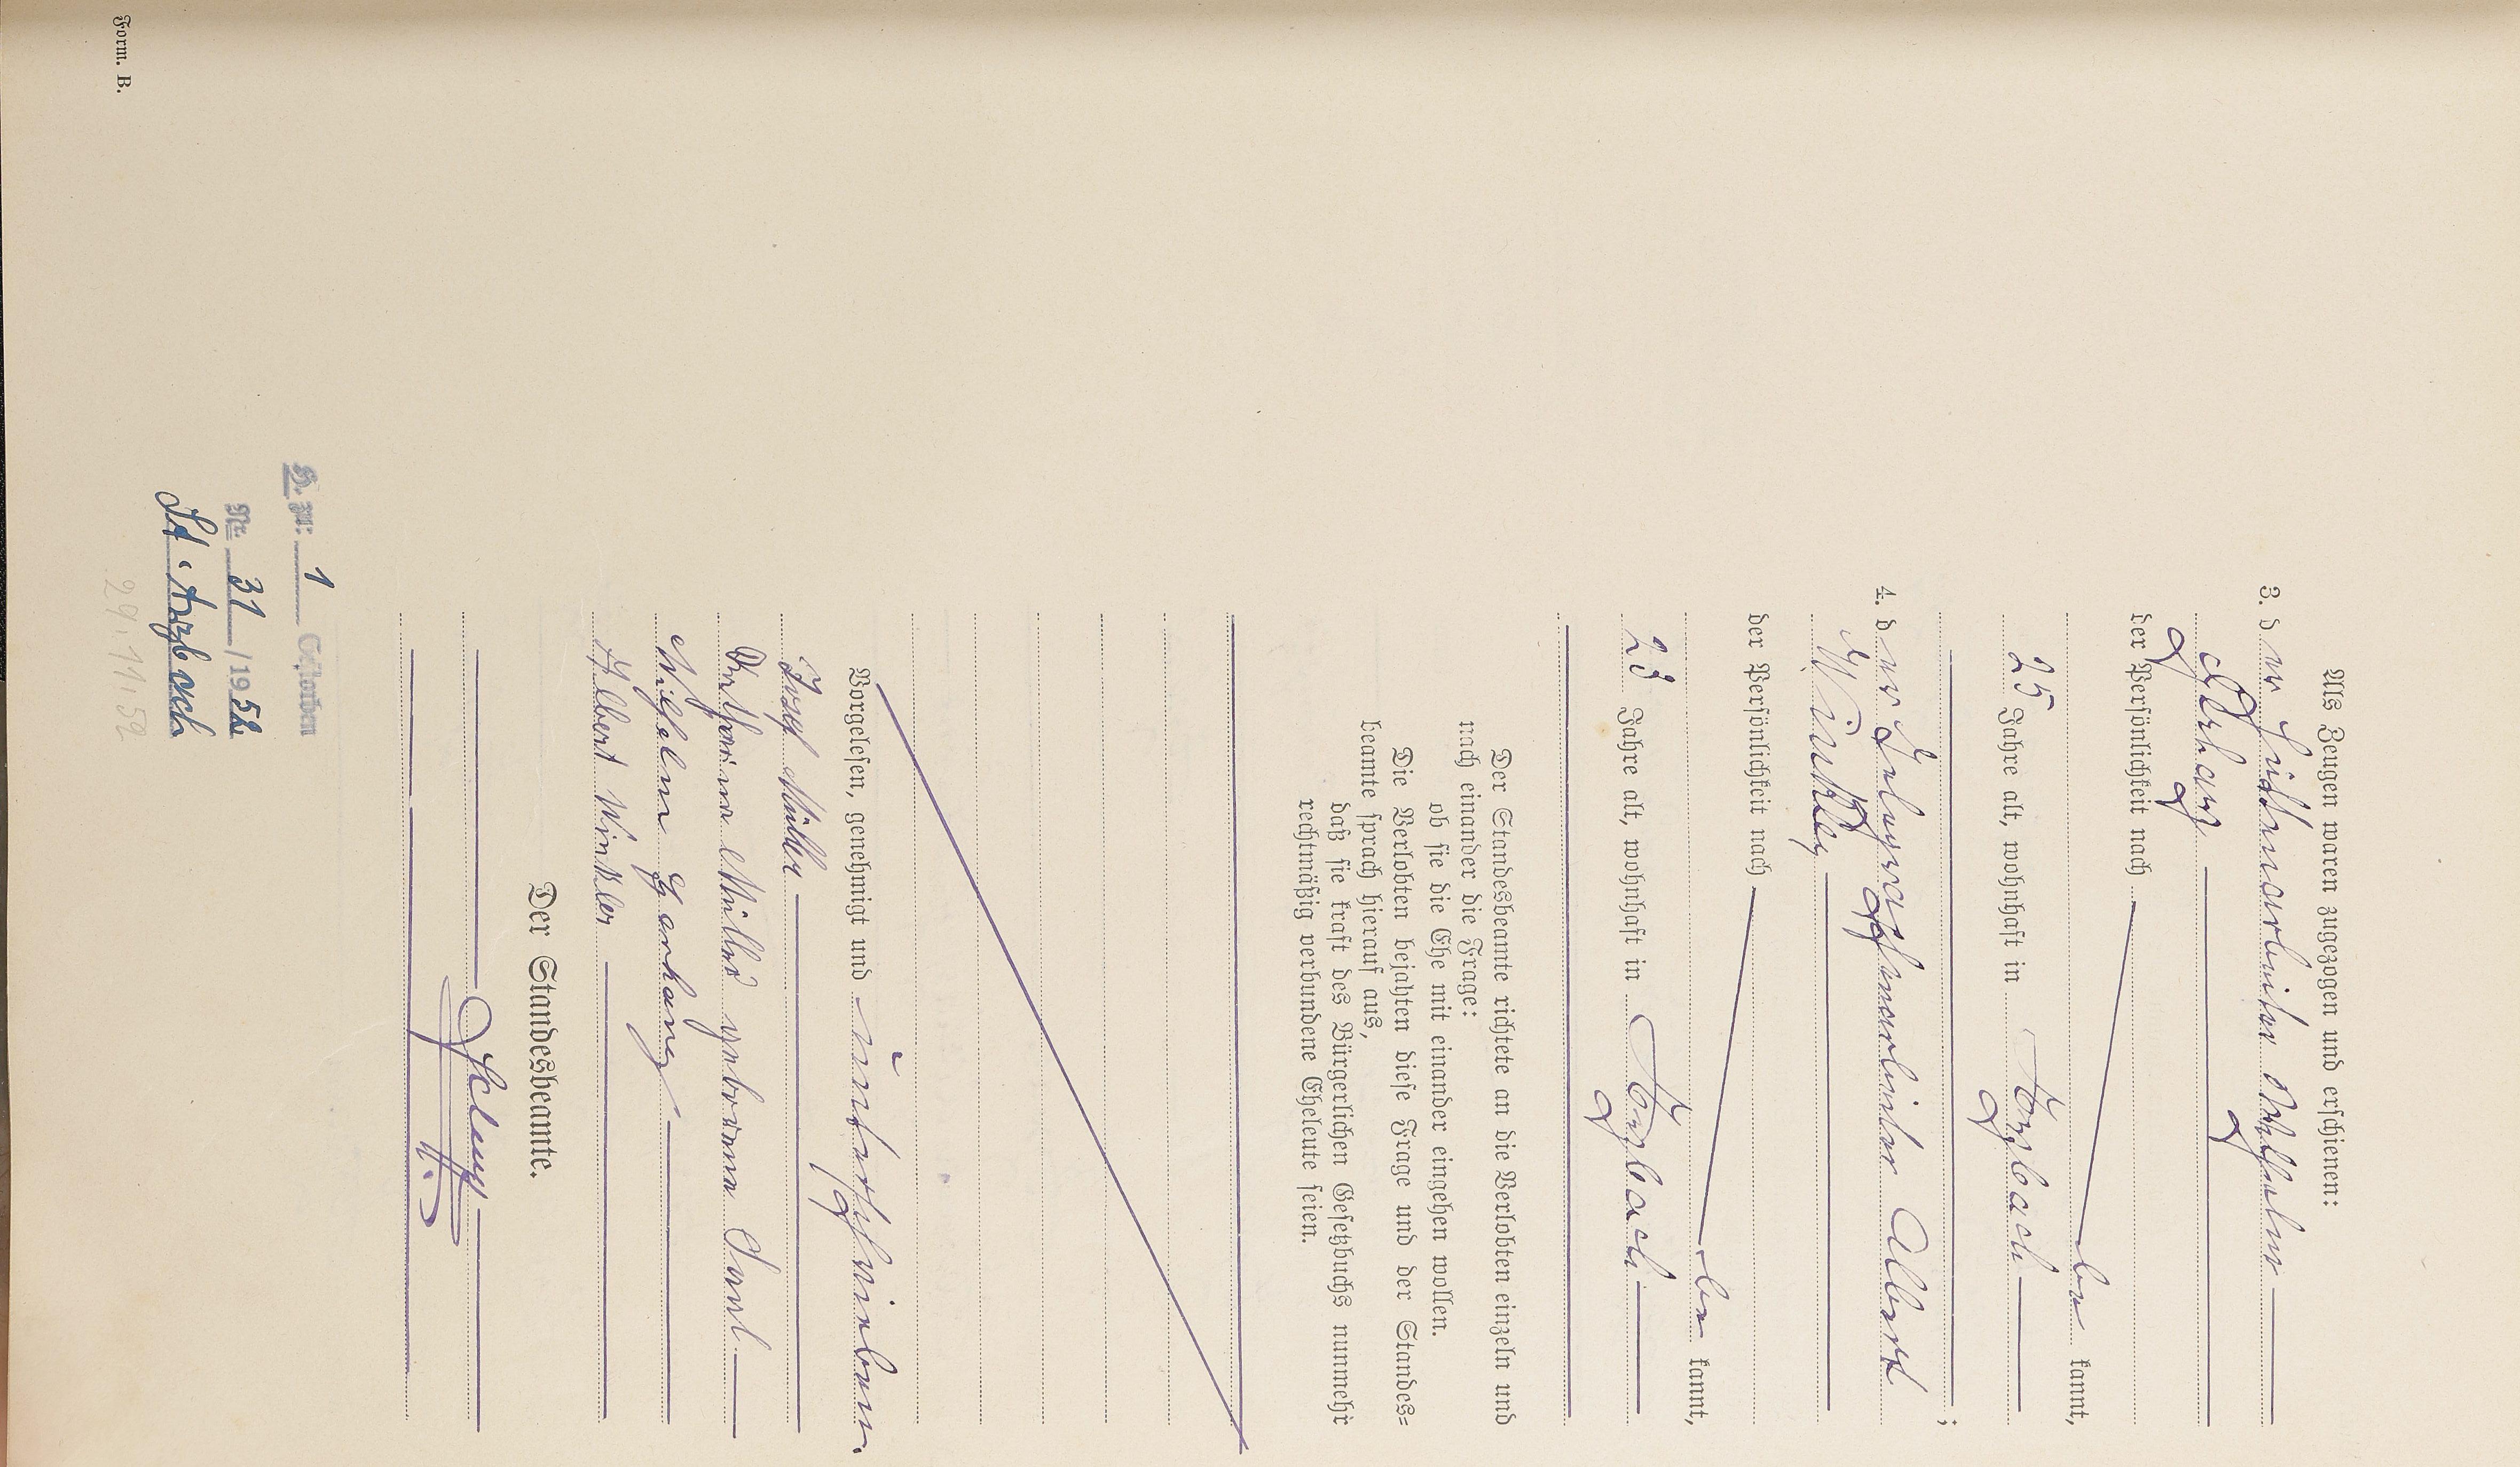 Als Zeugen waren zugezogen und erschienen:
3. der Wilhelm
Gerharz
der Persönlichkeit nach
be kannt,
25 Jahre alt, wohnhaft in Arzbach
;
4. der Albert
Winkler
der Persönlichkeit nach
be kannt,
23 Jahre alt, wohnhaft in Arzbach
Der Standesbeamte richtete an die Verlobten einzeln und
nach einander die Frage:
ob sie die Ehe mit einander eingehen wollen.
Die Verlobten bejahten diese Frage und der Standes=
beamte sprach hierauf aus,
daß sie kraft des Bürgerlichen Gesetzbuchs nunmehr
rechtmäßig verbundene Eheleute seien.
Vorgelesen, genehmigt und unterschrieben.
Josef Müller
Müller geborene
Wilhelm Gerharz
Albert Winkler
Der Standesbeamte.
H. z. M: 1 Gestorben
Nr. 31 / 1952
St. Arzbach
29.11.52
Form. B.